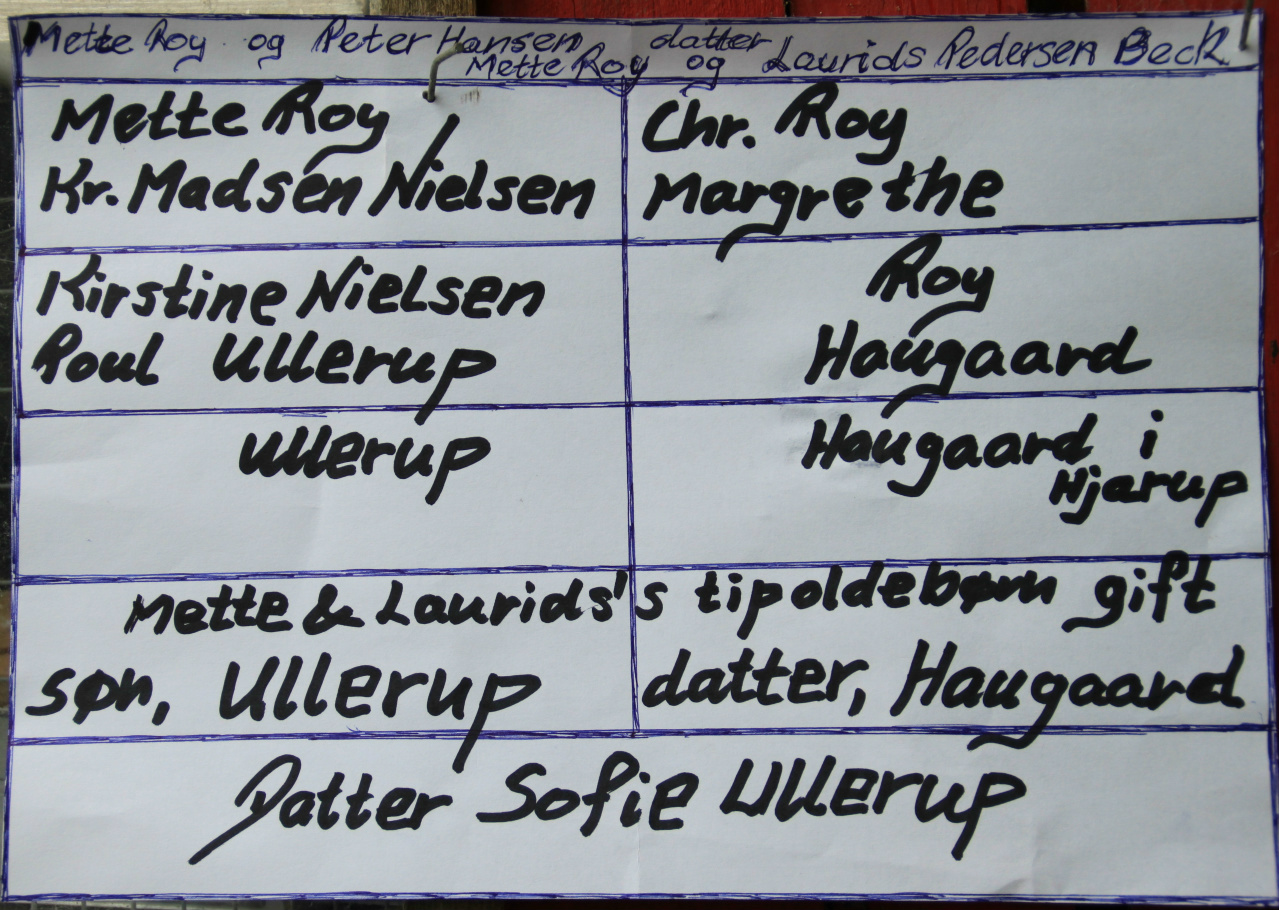 Mette Roy og Peter Hansen datter
Mette Roy og Laurids Pedersen Beck
Mette Roy
Kr. Madsen Nielsen
Chr. Roy
Margrethe
Kirstine Nielsen
Poul Ullerup
Roy
Haugaard
Ullerup
Haugaard i
Hjarup
Mette & Laurids's tipoldebørn gift
søn, Ullerup
datter, Haugaard
Datter Sofie Ullerup